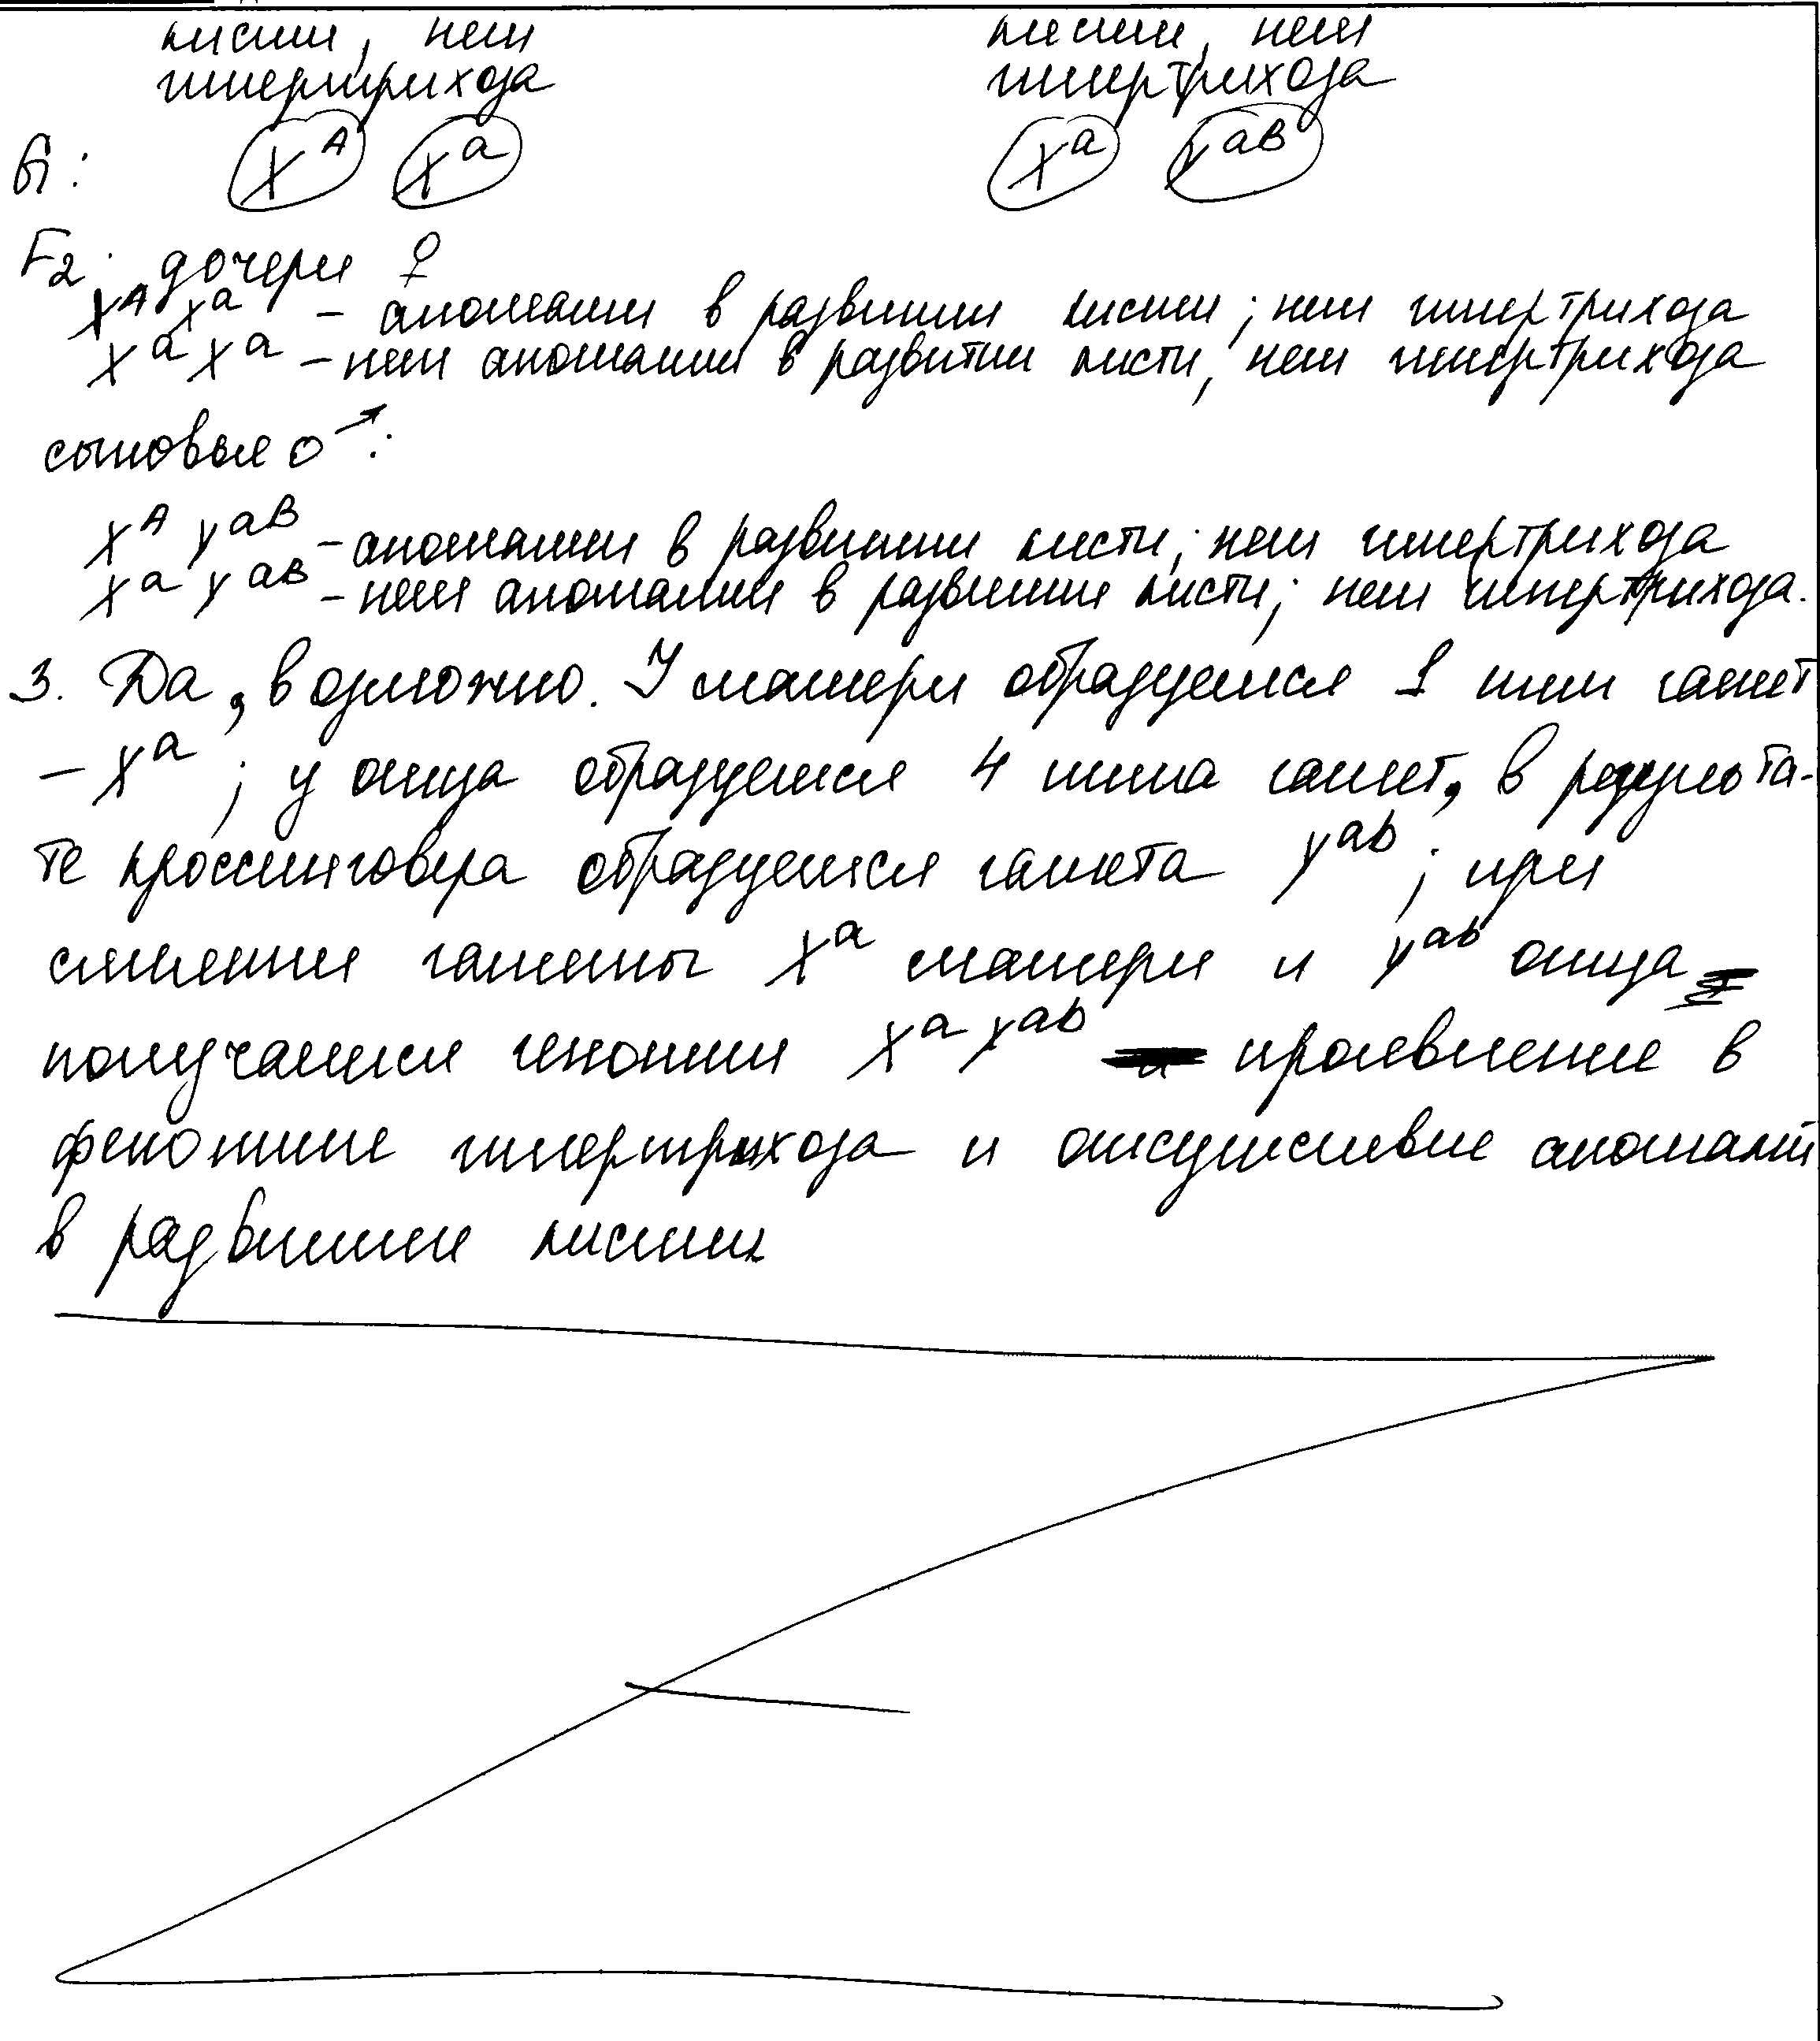 кисти, нет кисти, нет
гипертрихоза гипертрихоза
G: X^A X^a X^a Y^aB
F2: дочери ♀
X^A X^a – аномалии в развитии кисти; нет гипертрихоза
X^a X^a – нет аномалии в развитии кисти, нет гипертрихоза
сыновья ♂:
X^A Y^aB – аномалии в развитии кисти; нет гипертрихоза
X^a Y^aB – нет аномалии в развитии кисти; нет гипертрихоза.
3. Да, возможно. У матери образуется 1 тип гамет
– X^a; у отца образуется 4 типа гамет, в результа-
те кроссинговера образуется гамета Y^ab; при
слиянии гаметы X^a матери и Y^ab отца
получается генотип X^a Y^ab проявление в
фенотипе гипертрихоза и отсутствие аномалий
в развитии кисти